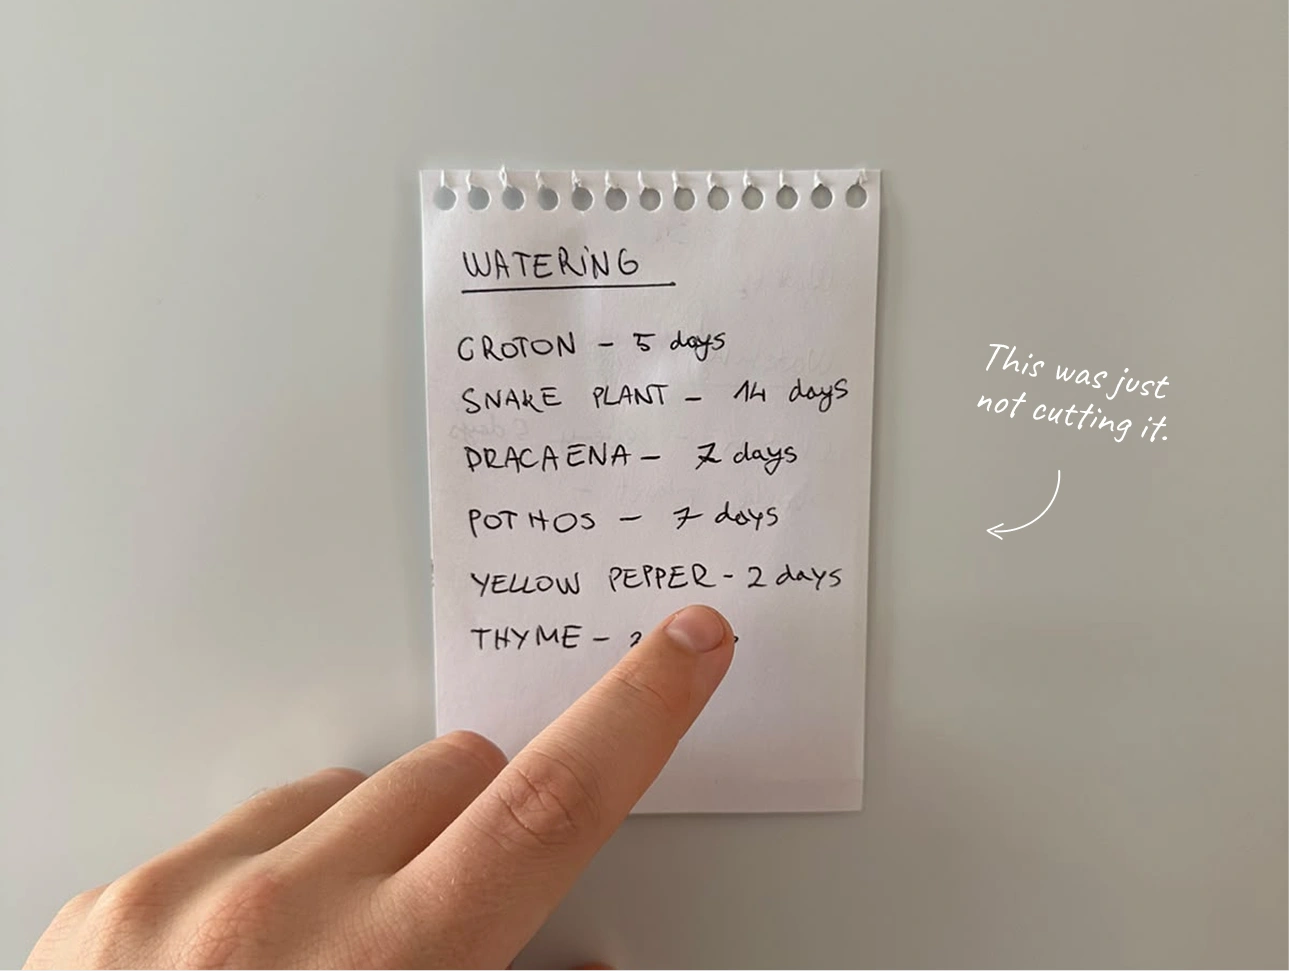 WATERING
CROTON - 5 days
SNAKE PLANT - 14 days
DRACAENA - 7 days
POTHOS - 7 days
YELLOW PEPPER - 2 days
THYME -
This was just
not cutting it.